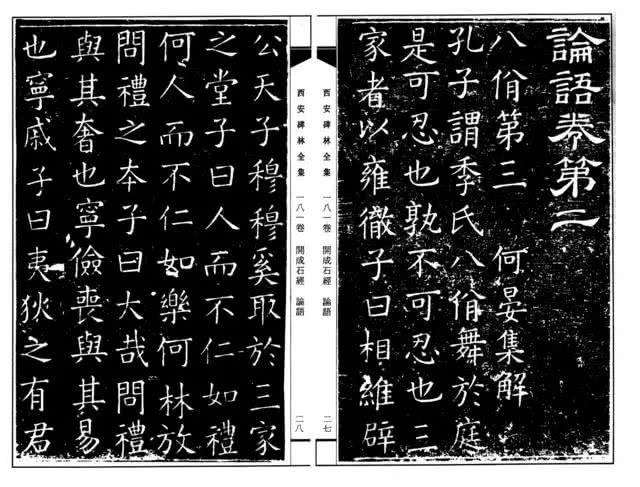 論語卷第二
八佾第三 何晏集解
孔子謂季氏八佾舞於庭
是可忍也孰不可忍也三
家者以雍徹子曰相維辟
西安碑林全集 一八一卷 開成石經 論語 二七
西安碑林全集 一八一卷 開成石經 論語 二八
公天子穆穆奚取於三家
之堂子曰人而不仁如禮
何人而不仁如樂何林放
問禮之本子曰大哉問禮
與其奢也寧儉喪與其易
也寧戚子曰夷狄之有君